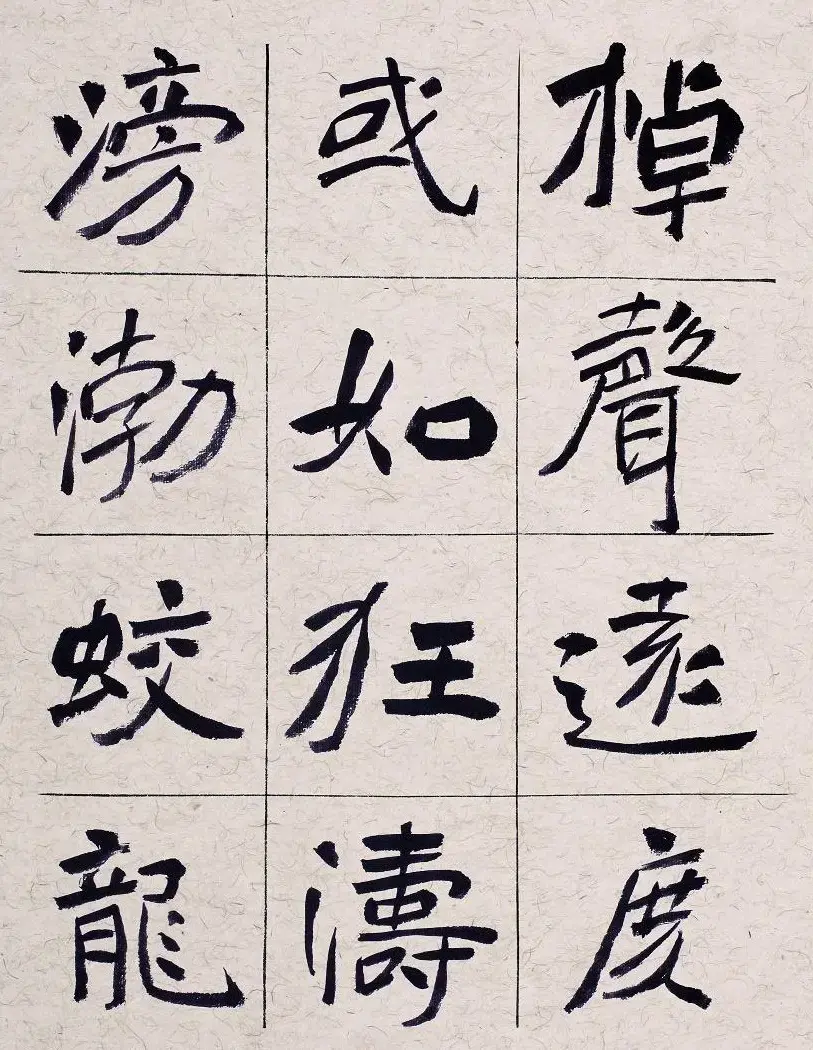 棹聲遠度
或如狂濤
滂渤蛟龍